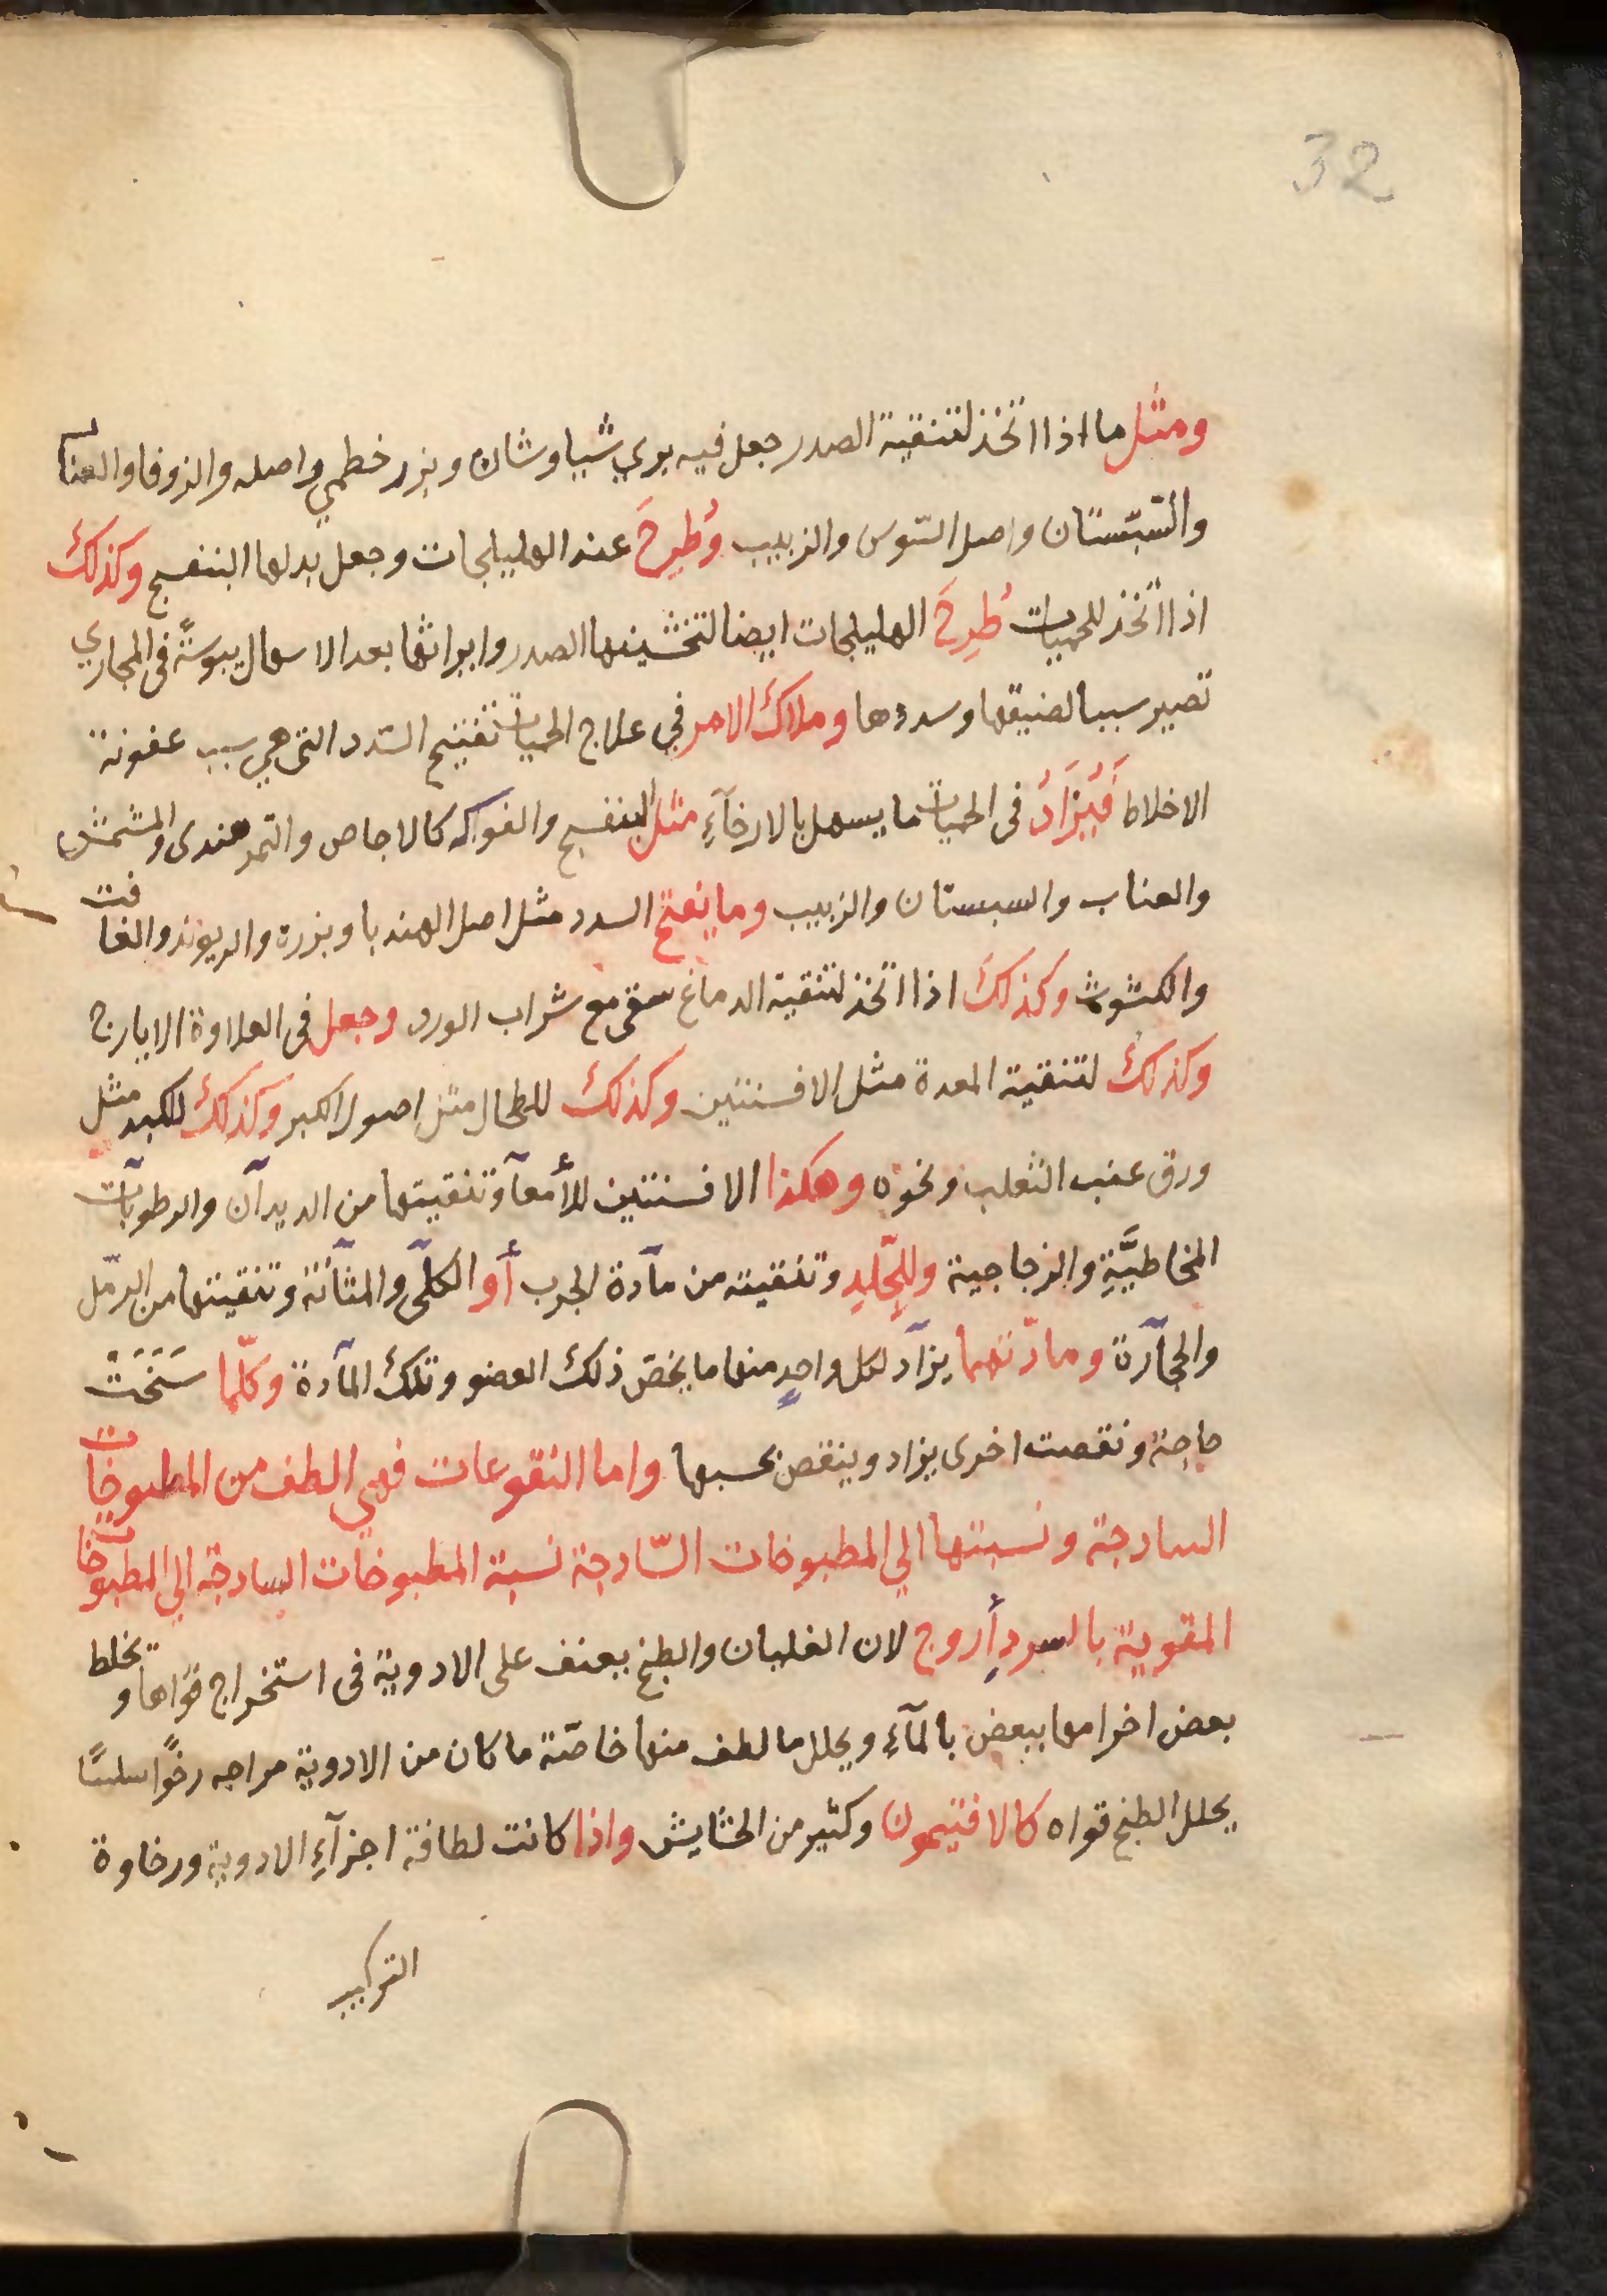 32
ومثل ما اذا اتخذ لتنقية الصدر جعل فيه بري شياوشان وبزر خطمي واصله والزوفا والعناب
والسّبستان واصل السّوس والزبيب وُطِرحَ عنه الهليلجات وجعل بدلها البنفسج وكذلك
اذا اتّخذ للحميات طُرِحَ الهليلجات ايضا لتخشينها الصدر وايراثها بعد الاسهال يبوسةً في المجاري
تصير سببا لضيقها وسددها وملاك الامر في علاج الحميات تفتيح السّدد التي هي سبب عفونة
الاخلاط فَيُزَادُ في الحميات ما يسهل بالارخآءِ مثل البنفسج والفواكه كالاجاص والتمر هندى والمشمش
والعناب والسبستان والزبيب وما يفتح السدد مثل اصل الهندبا وبزره والريوند والغافت
والكشوث وكذلك اذا اتخذ لتنقية الدماغ سقي مع شراب الورد وجعل في العلاوة الايارج
وكذلك لتنقية المعدة مثل الافسنتين وكذلك للطحال مثل اصول الكبر وكذلك للكبد مثل
ورق عنب الثعلب ونحوه وهكذا الافسنتين للأمعآ وتنقيتها من الديدآن والرطوبآت
المخاطيَّةِ والزجاجية وللجِّلدِ وتنقيته من مآدة الجرب أو الكلَى والمثآنة وتنقيتها من الرمّل
والحجآرة ومادّتهما يزآد لكل واحدٍ منها ما يخصّ ذلك العضو وتلك المآدة وكلّما سَنَحَتْ
حاجة ونقصت اخرى يزاد وينقص بحسبها واما النقوعات فهي الطف من المطبوخات
السادجة ونسبتها الي المطبوخات السّادجة نسبة المطبوخات السادجة الي المطبوخات
المقوية بالسردِ أروج لان الغليان والطبخ يعنف على الادوية في استخراج قوّاها ويخلط
بعض اخرامها ببعض بالمآءِ ويحلل ما لطف منها خاصّة ما كان من الادوية مراجه رخوًا سلسًا
يحلل الطبخ قواه كالافتيمون وكثير من الحشايش واذا كانت لطافة اجزآءِ الادوية ورخاوة
التركيب